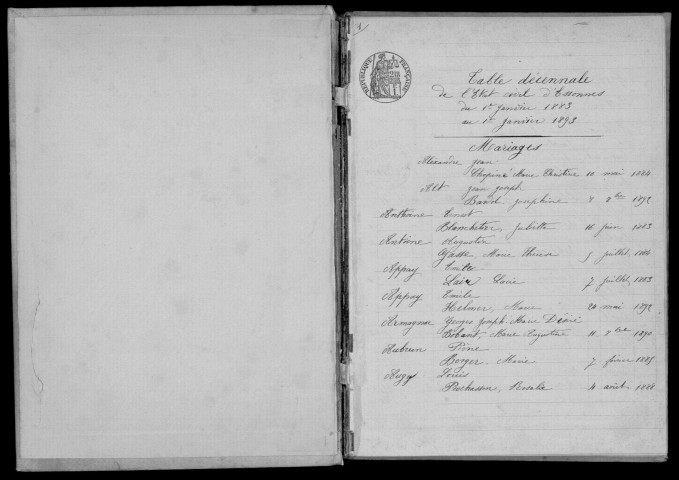 1
RÉPUBLIQUE FRANÇAISE
Table décennale
de l'Etat civil d'Essonnes
du 1er Janvier 1883
au 1er Janvier 1893
Mariages
Alexandre Jean
Marie 10 mai 1884
Alt Jean Joseph
Joséphine 8 8bre 1892
Anthoine Ernest
Blancheton, Juliette 16 juin 1883
Antoine Augustin
Marie Thérèse 5 juillet
Appay Emile
Louise 7 juillet 1883
Appay Emile
Helmer, Marie 20 mai 1892
Armagnac Georges Joseph Marie Désiré
Marie Augustine 11 8bre 1890
Aubrun
Berger, Marie 7 1885
Augy Louis
Prochasson, Rosalie 4 août 1888